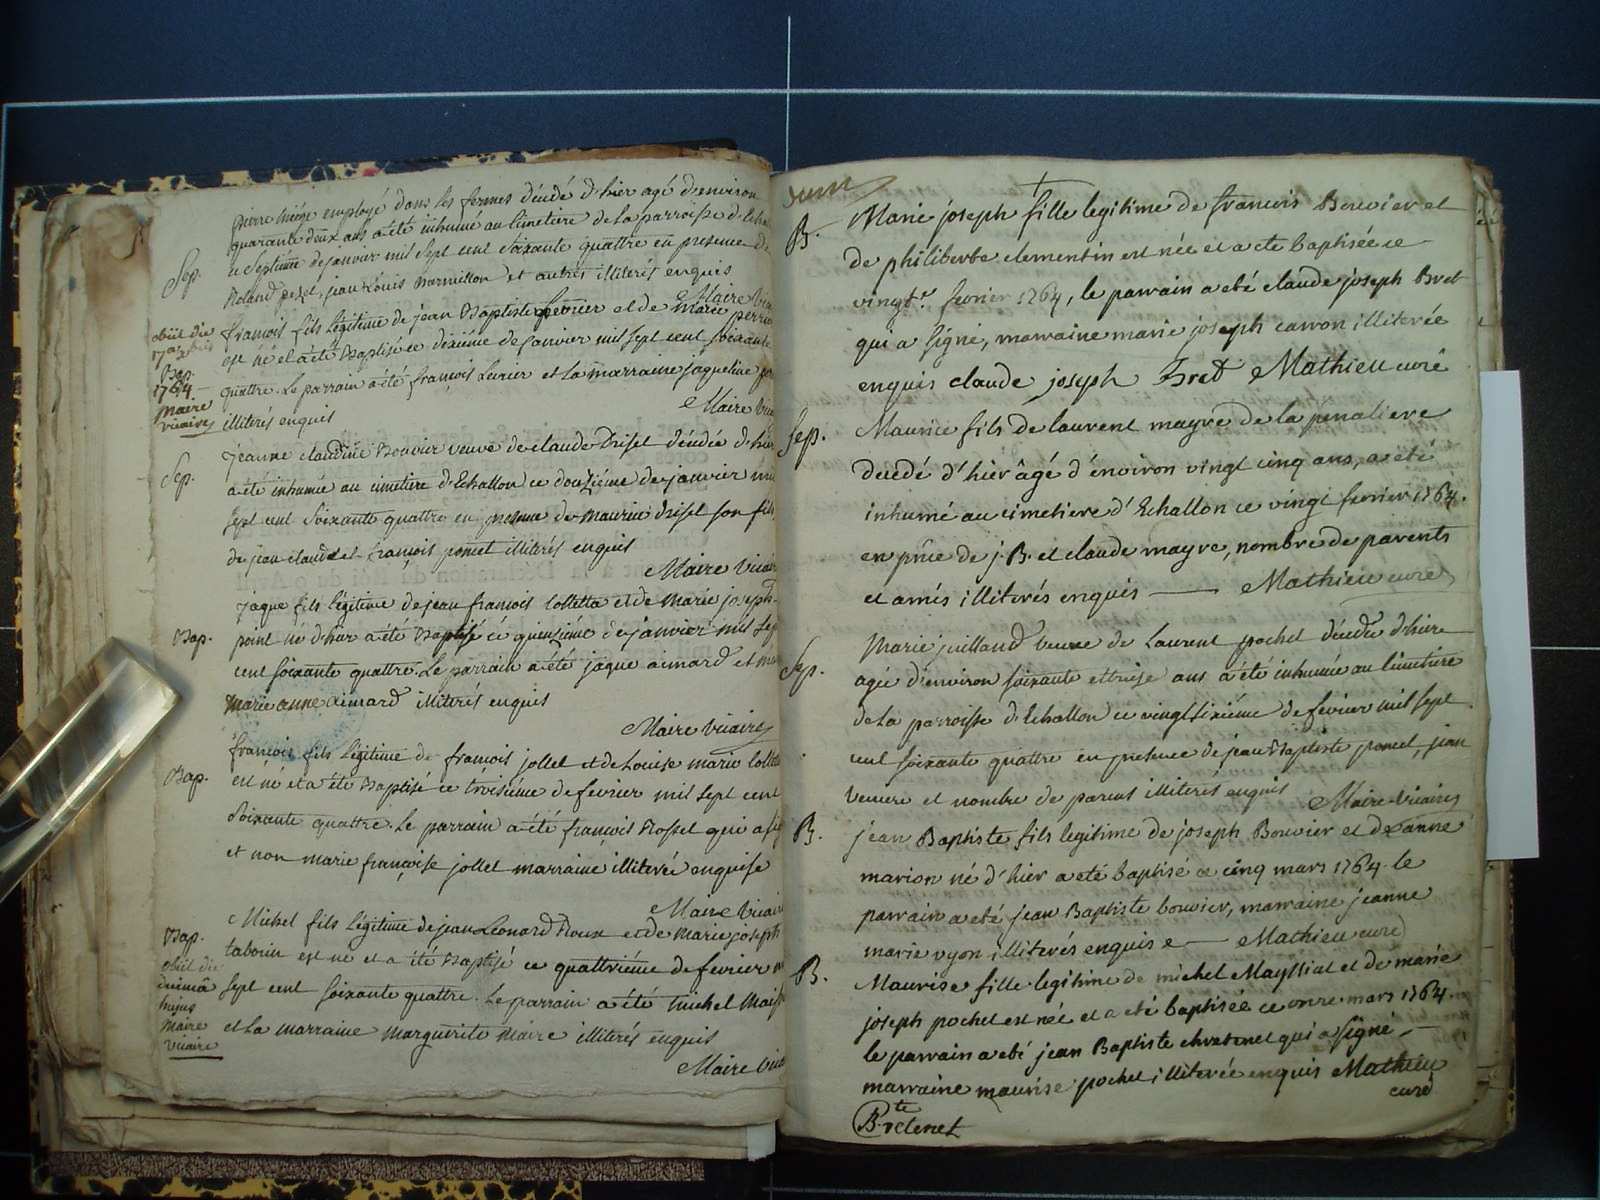 pierre employé dans les fermes décédé d'hier agé d'environ
quarante deux ans a été inhumé au Cimetiere de la parroisse
ce Septieme de janvier mil Sept cent Soixante quattre en presence de
Sep.
Roland pezet, jean Louis et autres illiterés enquis
Maire
obiit die
françois fils légitime de jean Baptiste et de Marie
est né et a été Baptisé ce dixiéme de janvier mil sept cent soixante
Bap.
1764
quattre. Le parrain a été françois et La marraine jaqueline
Maire
vicaire
illiterés enquis
Maire
Sep.
jeanne claudine Bouvier veuve de claude Driset décédée d'hier
a été inhumée au cimetiere d'Echallon ce douzieme de janvier mil
sept cent Soixante quattre en presence de Maurice Driset son fils
de jean claude et françois poncet illiterés enquis
Maire Vicaire
jaque fils légitime de jean françois Colletta et de Marie joseph
Bap.
point né d'hier a été Baptisé ce quinziéme de janvier mil Sept
cent soixante quattre. Le parrain a été jaque aimard et
Marie anne aimard illiterés enquis
Maire Vicaire
françois fils Légitime de françois jollet et de Louise marie
Bap.
est né et a été Baptisé ce troisiéme de fevrier mil sept cent
Soixante quattre. Le parrain a été françois Rosset qui a
et non marie françoise jollet marraine illiterée enquise
Maire Vicaire
Michel fils Légitime de jean Léonard Roux et de Marie joseph
Bap.
taborin est né et a été Baptisé ce quattriéme de fevrier
obiit die
sept cent soixante quattre. Le parrain a été michel
hujus
Maire
et La marraine marguerite Maire illiterés enquis
vicaire
Maire
B.
Marie joseph fille legitime de francois Bouvier et
de philiberte clementin est née et a eté baptisée ce
fevrier 1764, le parrain a eté claude joseph Bret
qui a signé, marraine marie joseph carron illiterée
enquis claude joseph Bret Mathieu curé
Sep.
Maurice fils de laurent mayre de la penaliere
decedé d'hier âgé d'environ vingt cinq ans, a eté
inhumé au cimetiere d'Echallon ce vingt fevrier 1764.
en pnce de j. B. et claude mayre, nombre de parents
et amis illiterés enquis Mathieu curé
Marie juilland veuve de Laurent pochet décédée d'hier
Sep.
agée d'environ soixante et treize ans a été inhumée au Cimetiere
de La parroisse d'Echallon ce vingt sixiéme de février mil sept
cent soixante quattre en presence de jean Baptiste poncet, jean
et nombre de parens illiterés enquis Maire Vicaire
B.
jean Baptiste fils legitime de joseph Bouvier et de anne
marion né d'hier a eté baptisé ce cinq mars 1764. le
parrain a eté jean Baptiste bouvier, marraine jeanne
marie vyon illiterés enquis Mathieu curé
B.
Maurise fille legitime de michel Maysliat et de marie
joseph pochet est née et a eté baptisée ce onze mars 1764.
le parrain a eté jean Baptiste qui a signé
marraine maurise pochet illiterée enquis Mathieu
curé